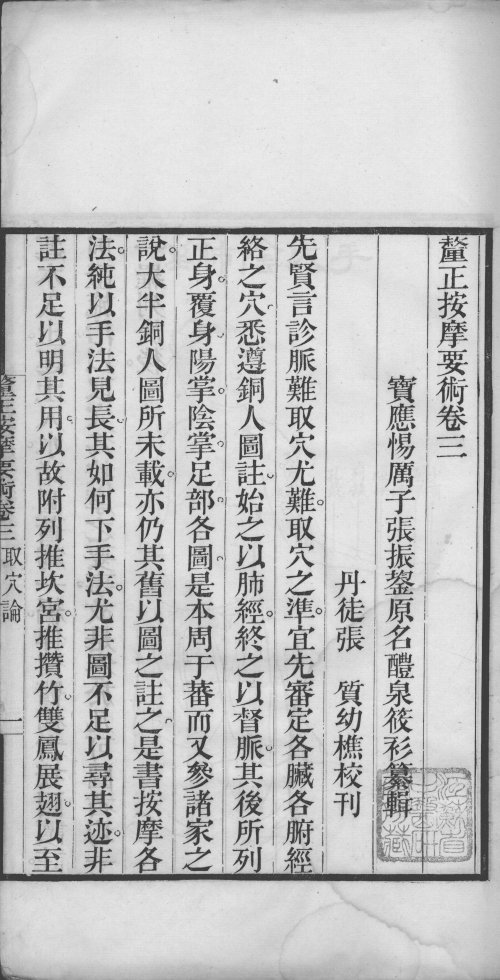 釐正按摩要術卷三
寶應惕厲子張振鋆原名醴泉筱衫纂輯
丹徒張 質幼樵校刊
先賢言診脈難取穴尤難取穴之準宜先審定各臟各腑經
絡之穴悉遵銅人圖註始之以肺經終之以督脈其後所列
正身覆身陽掌陰掌足部各圖是本周于蕃而又參諸家之
說大半銅人圖所未載亦仍其舊以圖之註之是書按摩各
法純以手法見長其如何下手法尤非圖不足以尋其迹非
註不足以明其用以故附列推坎宮推攢竹雙鳳展翅以至
釐正按摩要術卷三 取穴論 一